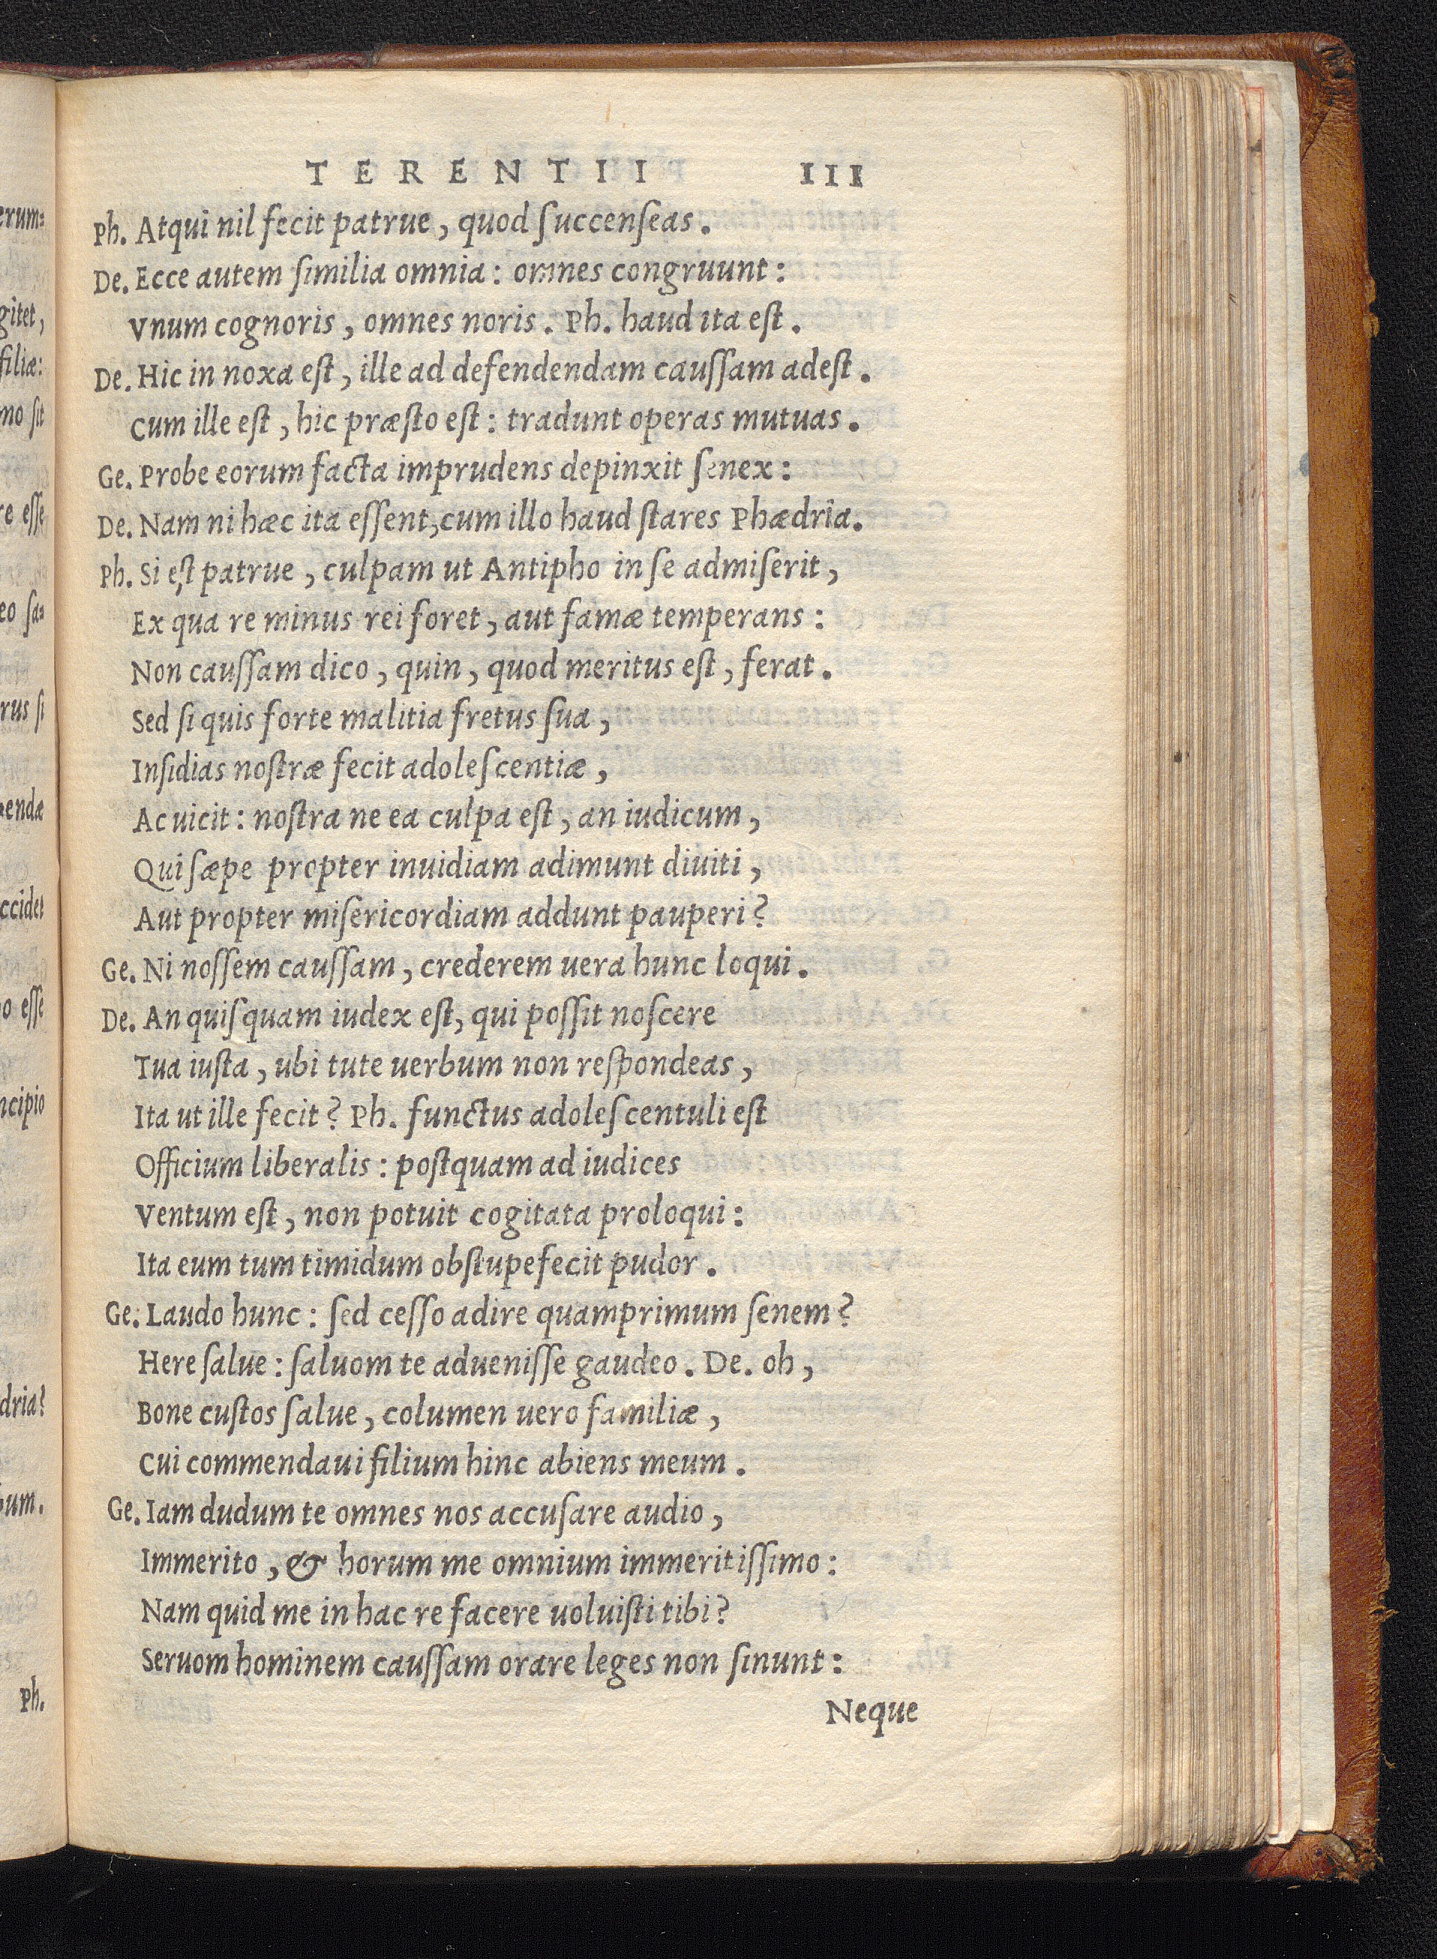 erum:
gitet,
filiæ:
mo ſit
re eſſe
eo ſa:
rus ſi
endæ
ccidet
o eſſe
ncipio
dria?
bum.
Ph.
TERENTII III
Ph. Atqui nil fecit patrue, quod ſuccenſeas.
De. Ecce autem ſimilia omnia: omnes congruunt:
Vnum cognoris, omnes noris. Ph. haud ita eſt.
De. Hic in noxa eſt, ille ad defendendam cauſſam adeſt.
Cum ille eſt, hic præſto eſt: tradunt operas mutuas.
Ge. Probe eorum facta imprudens depinxit ſenex:
De. Nam ni hæc ita eſſent, cum illo haud ſtares Phædria.
Ph. Si eſt patrue, culpam ut Antipho in ſe admiſerit,
Ex qua re minus rei foret, aut famæ temperans:
Non cauſſam dico, quin, quod meritus eſt, ferat.
Sed ſi quis forte malitia fretus ſua,
Inſidias noſtræ fecit adoleſcentiæ,
Ac uicit: noſtra ne ea culpa eſt, an iudicum,
Qui ſæpe propter inuidiam adimunt diuiti,
Aut propter miſericordiam addunt pauperi?
Ge. Ni noſſem cauſſam, crederem uera hunc loqui.
De. An quiſquam iudex eſt, qui poſſit noſcere
Tua iuſta, ubi tute uerbum non reſpondeas,
Ita ut ille fecit? Ph. functus adoleſcentuli eſt
Officium liberalis: poſtquam ad iudices
Ventum eſt, non potuit cogitata proloqui:
Ita eum tum timidum obſtupefecit pudor.
Ge. Laudo hunc: ſed ceſſo adire quamprimum ſenem?
Here ſalue: ſaluom te adueniſſe gaudeo. De. oh,
Bone cuſtos ſalue, columen uero familiæ,
Cui commendaui filium hinc abiens meum.
Ge. Iam dudum te omnes nos accuſare audio,
Immerito, & horum me omnium immeritiſſimo:
Nam quid me in hac re facere uoluiſti tibi?
Seruom hominem cauſſam orare leges non ſinunt:
Neque